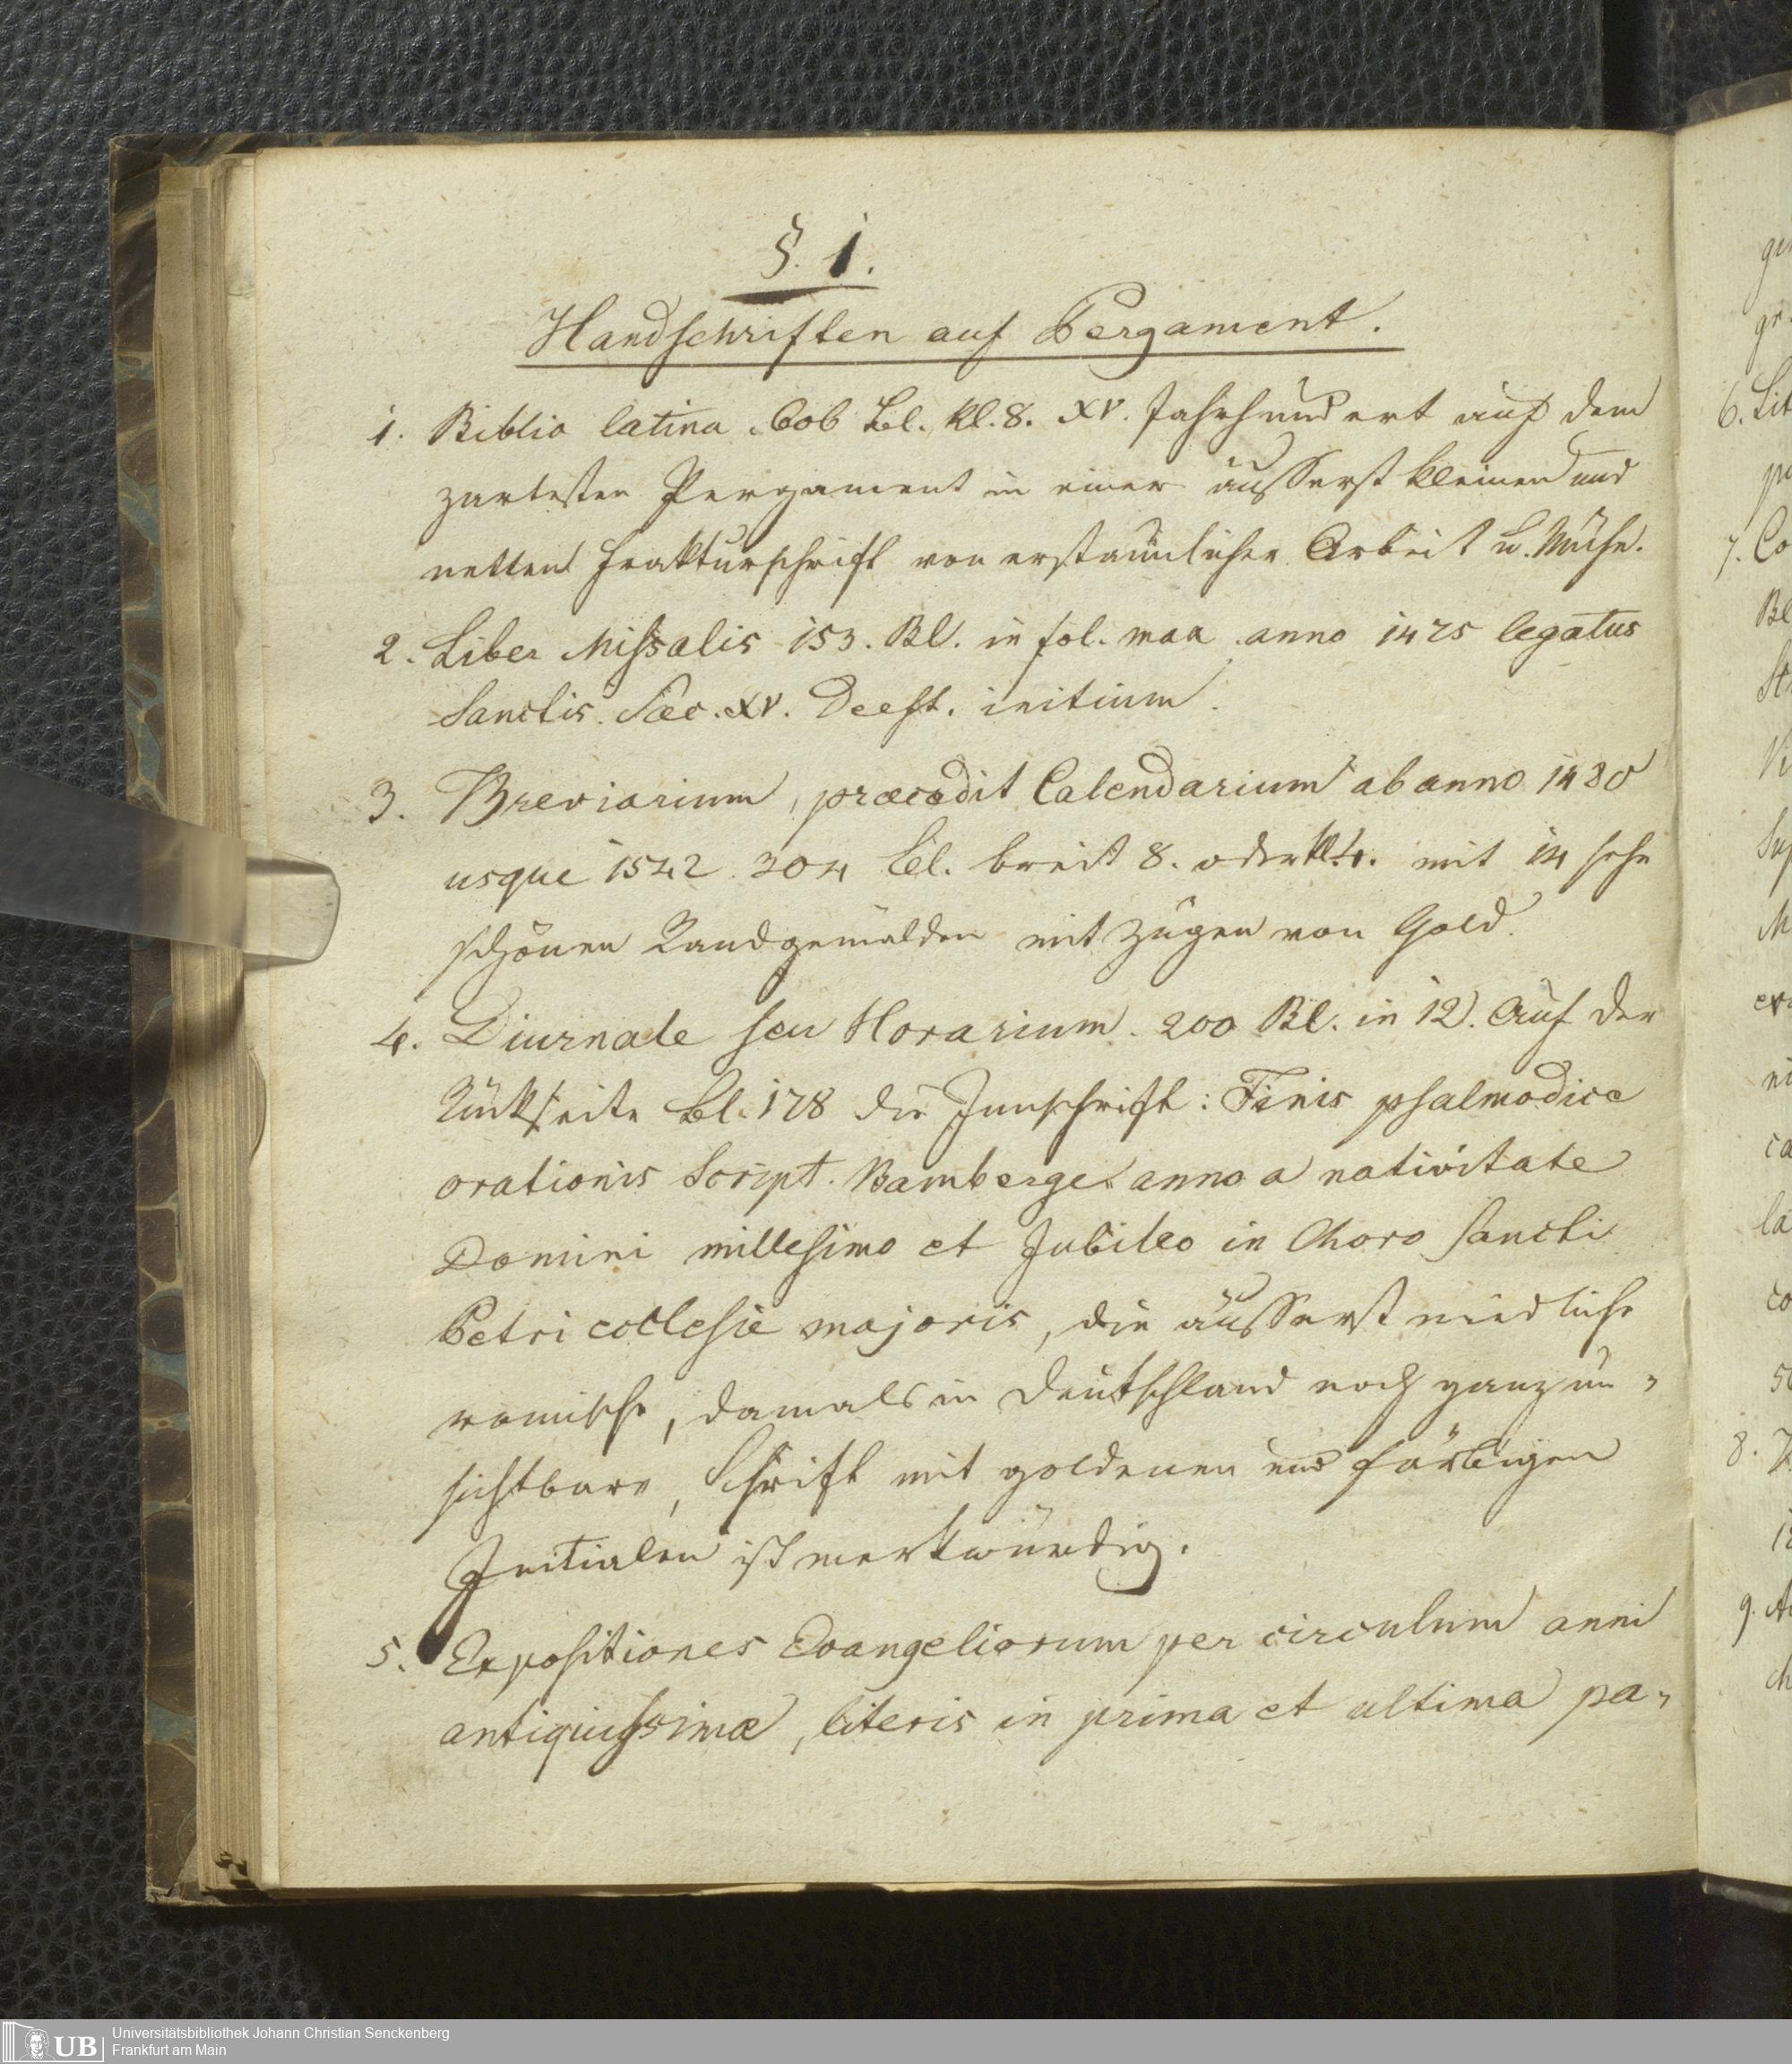 §. 1.
Handschriften auf Pergament.
1. Biblia latina. 606 Bl. kl. 8. XV. Jahrhundert auf dem
zartesten Pergament in einer äusserst kleinen und
netten Frakturschrift von erstaunlicher Arbeit u. Mühe.
2. Liber Missalis 153. Bl. in fol. max. anno 1475 legatus
Sanctis. Sæc. XV. Deest. initium.
3. Breviarium, præcedit Calendarium ab anno 1480
usque 1542. 304 Bl. breit 8. oder kl. 4. mit 14 sehr
schönen Randgemälden mit Zügen von Gold.
4. Diurnale seu Horarium. 200 Bl. in 12. Auf der
Rückseite Bl. 178 die Innschrift: Finis psalmodice
orationis Script. Bamberge anno a nativitate
Domini millesimo et Jubileo in Choro sancti
Petri ecclesie majoris, die äusserst niedliche
romische, damals in Deutschland noch ganz un-
sichtbare, Schrift mit goldenen und färbigen
Initialen ist merkwürdig.
5. Expositiones Evangeliorum per circulum anni
antiquissimæ, literis in prima et ultima pa-
6. Lit
7. Co
Bl
8.
9.
Universitätsbibliothek Johann Christian Senckenberg
Frankfurt am Main
UB